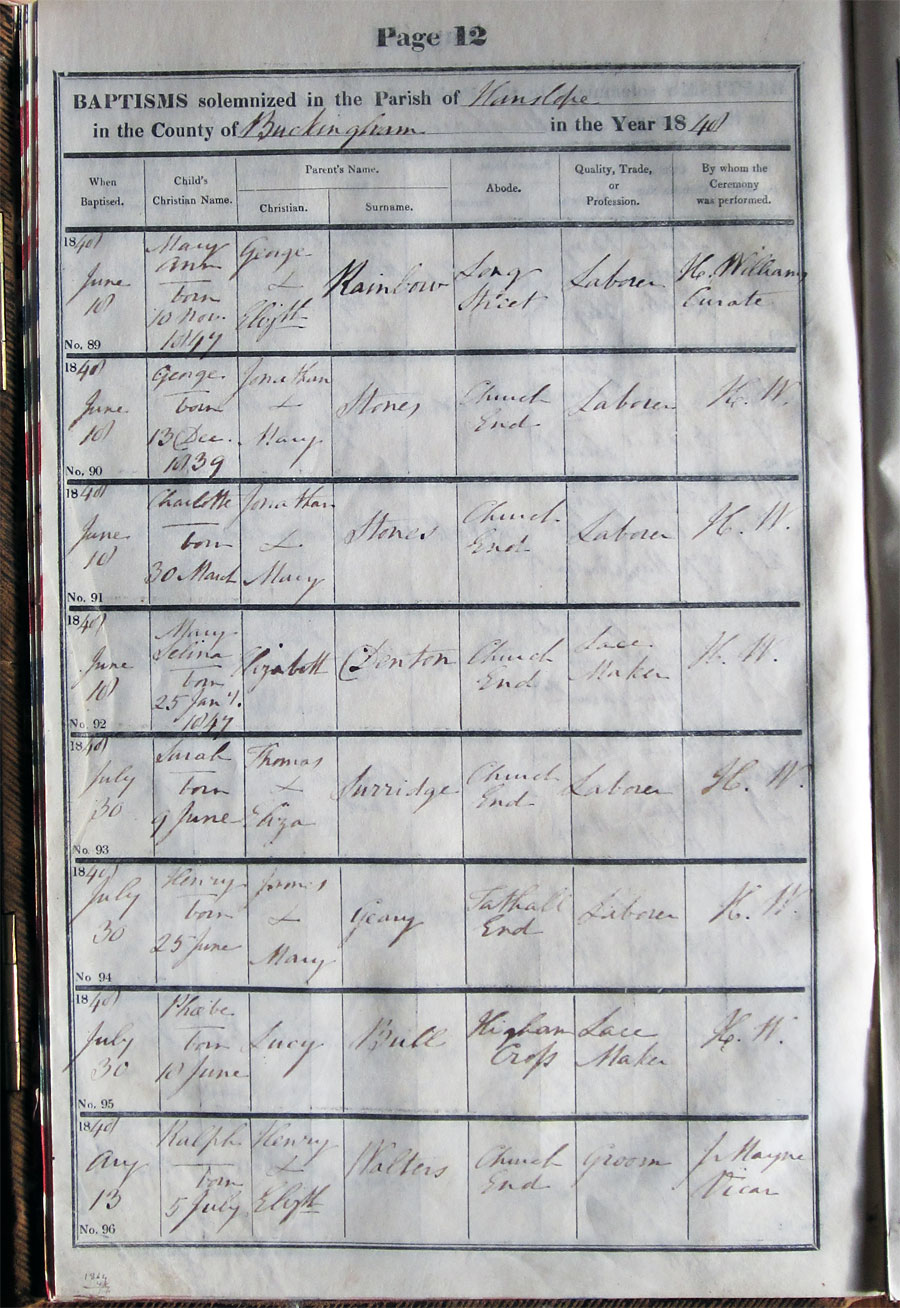 Page 12
BAPTISMS solemnized in the Parish of Hanslope
in the County of Buckingham in the Year 1848
When Baptised.
Child's Christian Name.
Parent's Name.
Christian.
Surname.
Abode.
Quality, Trade, or Profession.
By whom the Ceremony was performed.
1848
June
18
No. 89
Mary
Ann
born
10 Nov.
1847
George
&
Elizth
Rainbow
Long
Street
Laborer
H. Williams
Curate
1848
June
18
No. 90
George
born
13 Dec.
1839
Jonathan
&
Mary
Stones
Church
End
Laborer
H. W.
1848
June
18
No. 91
Charlotte
born
30 March
Jonathan
&
Mary
Stones
Church
End
Laborer
H. W.
1848
June
18
No. 92
Mary
Selina
born
25 Jany.
1847
Elizabeth
Denton
Church
End
Lace
Maker
H. W.
1848
July
30
No. 93
Sarah
born
9 June
Thomas
&
Eliza
Surridge
Church
End
Laborer
H. W.
1848
July
30
No. 94
Henry
born
25 June
James
&
Mary
Geary
Tathall
End
Laborer
H. W.
1848
July
30
No. 95
Phœbe
born
18 June
Lucy
Bull
Higham
Cross
Lace
Maker
H. W.
1848
Aug
13
No. 96
Ralph
born
5 July
Henry
&
Elizth
Walters
Church
End
Groom
J. Mayne
Vicar